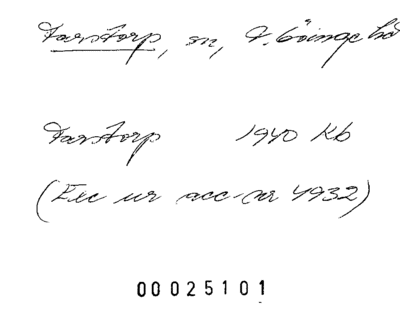 Farstorp, sn, V. Göinge hd
Farstorp 1940 Kb
(Exc ur acc-nr 4932)
00025101